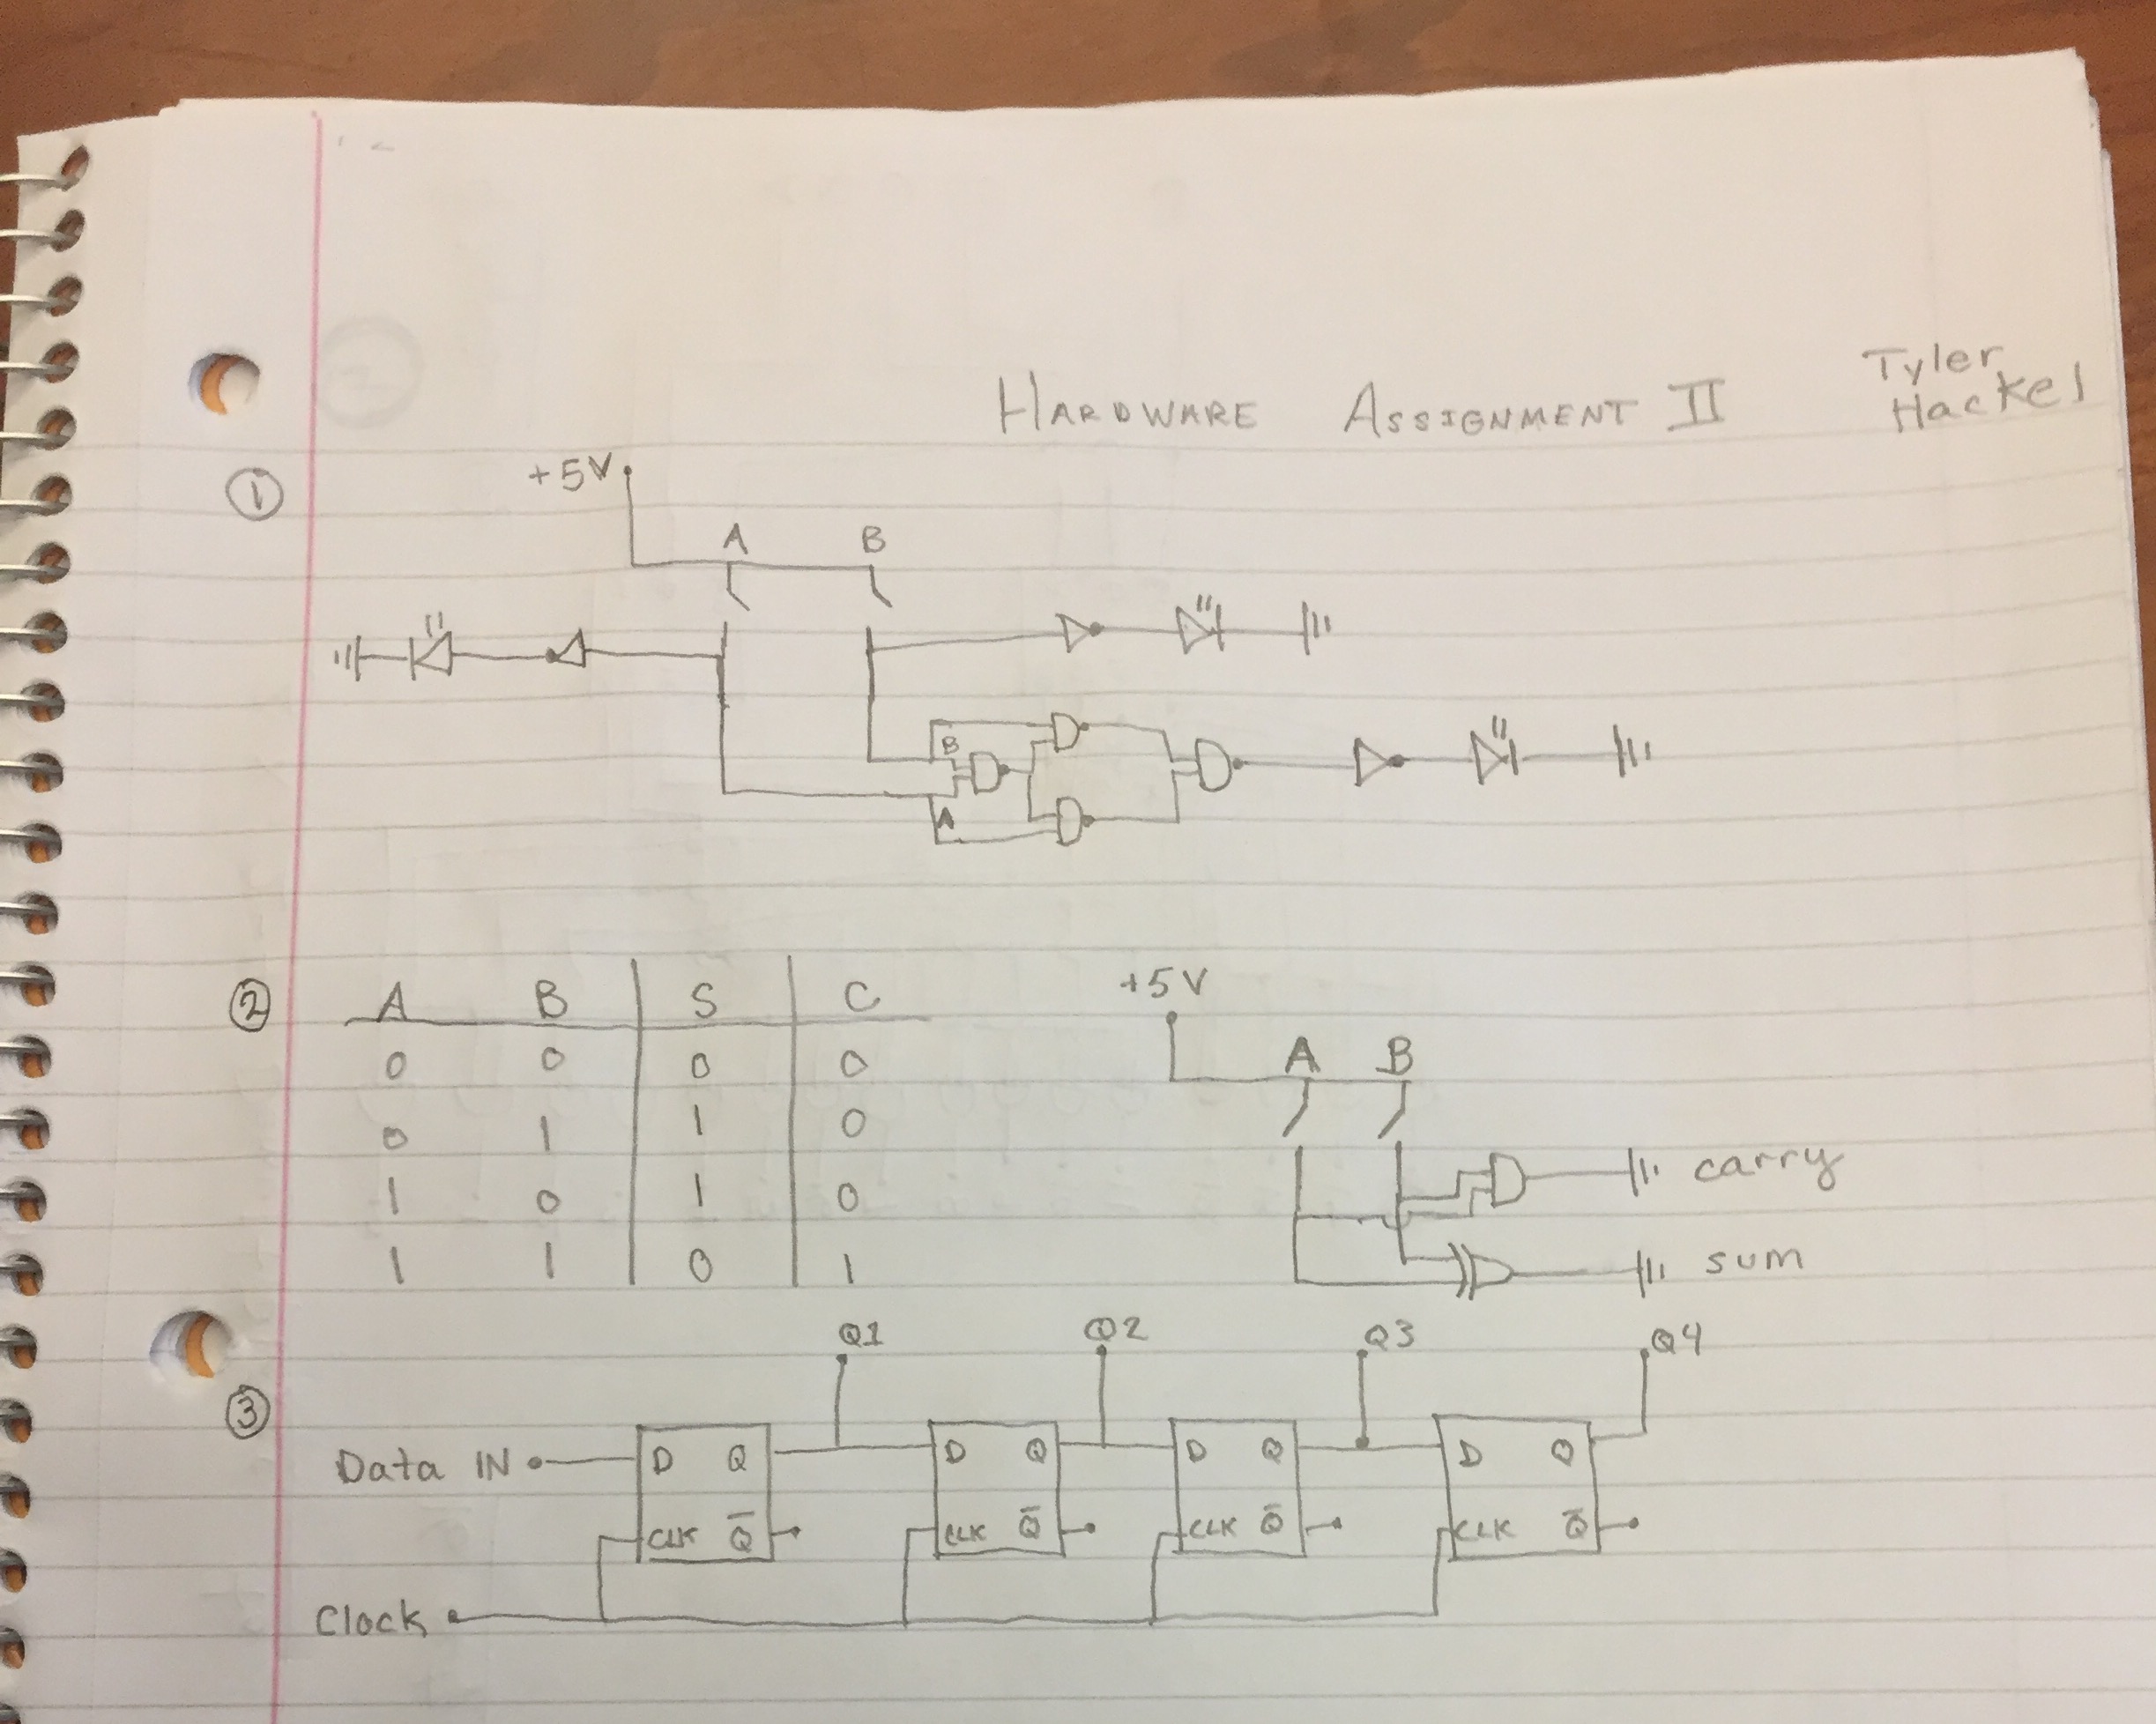 HARDWARE ASSIGNMENT II
Tyler
Hackel
①
+5V
A B
B
A
②
A B S C
0 0 0 0
0 1 1 0
1 0 1 0
1 1 0 1
+5V
A B
carry
sum
③
Q1 Q2 Q3 Q4
Data IN D Q D Q D Q D Q
CLK Q̅ CLK Q̅ CLK Q̅ CLK Q̅
Clock